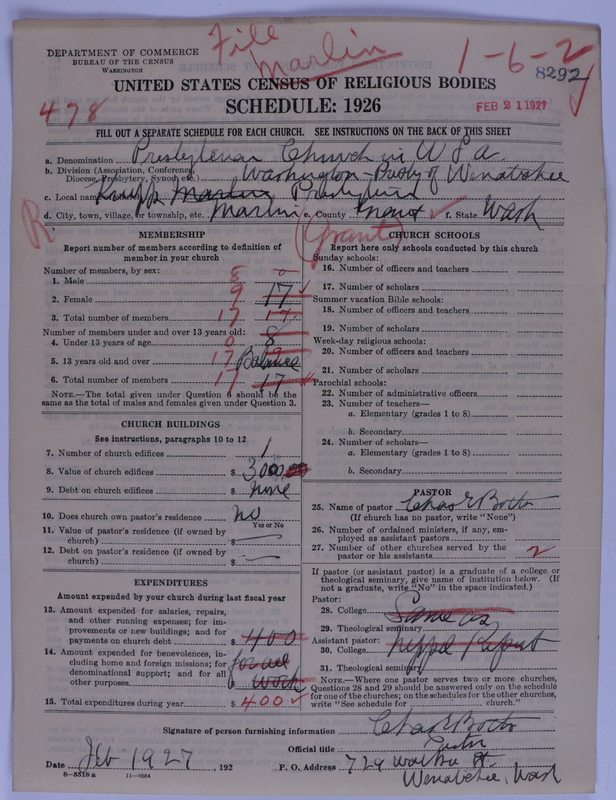 File
Marlin
1-6-2
8292
478
FEB 21 1927
DEPARTMENT OF COMMERCE
BUREAU OF THE CENSUS
WASHINGTON
UNITED STATES CENSUS OF RELIGIOUS BODIES
SCHEDULE: 1926
FILL OUT A SEPARATE SCHEDULE FOR EACH CHURCH. SEE INSTRUCTIONS ON THE BACK OF THIS SHEET
a. Denomination Presbyterian Church in U S A.
b. Division (Association, Conference, Diocese, Presbytery, Synod, etc.) Washington-Presby of Wenatchee
c. Local name Krupp Marlin Presbyterian
d. City, town, village, or township, etc. Marlin e. County Grant f. State Wash
R
(Grant)
MEMBERSHIP
Report number of members according to definition of
member in your church
Number of members, by sex:
1. Male 8
2. Female 9 17
3. Total number of members 17 17
Number of members under and over 13 years old:
4. Under 13 years of age 0 8
5. 13 years old and over 17 Balance
6. Total number of members 17 17
NOTE.—The total given under Question 6 should be the
same as the total of males and females given under Question 3.
CHURCH BUILDINGS
See instructions, paragraphs 10 to 12
7. Number of church edifices 1
8. Value of church edifices $ 3000
9. Debt on church edifices $ none
10. Does church own pastor's residence? no
Yes or No
11. Value of pastor's residence (if owned by
church) $
12. Debt on pastor's residence (if owned by
church) $
EXPENDITURES
Amount expended by your church during last fiscal year
13. Amount expended for salaries, repairs,
and other running expenses; for im-
provements or new buildings; and for
payments on church debt $ 400
14. Amount expended for benevolences, in-
cluding home and foreign missions; for
denominational support; and for all
other purposes $ work
15. Total expenditures during year $ 400
CHURCH SCHOOLS
Report here only schools conducted by this church
Sunday schools:
16. Number of officers and teachers
17. Number of scholars
Summer vacation Bible schools:
18. Number of officers and teachers
19. Number of scholars
Week-day religious schools:
20. Number of officers and teachers
21. Number of scholars
Parochial schools:
22. Number of administrative officers
23. Number of teachers—
a. Elementary (grades 1 to 8)
b. Secondary
24. Number of scholars—
a. Elementary (grades 1 to 8)
b. Secondary
PASTOR
25. Name of pastor Chas E
(If church has no pastor, write "None")
26. Number of ordained ministers, if any, em-
ployed as assistant pastors
27. Number of other churches served by the
pastor or his assistants 2
If pastor (or assistant pastor) is a graduate of a college or
theological seminary, give name of institution below. (If
not a graduate, write "No" in the space indicated.)
Pastor:
28. College Same as
29. Theological seminary
Assistant pastor:
30. College Report
31. Theological seminary
NOTE.—Where one pastor serves two or more churches,
Questions 28 and 29 should be answered only on the schedule
for one of the churches; on the schedules for the other churches,
write "See schedule for church."
Signature of person furnishing information Chas E
Official title Pastor
Date Feb 1927 192
P. O. Address 729 St.
Wenatchee, Wash
8-5518 a 11-9564